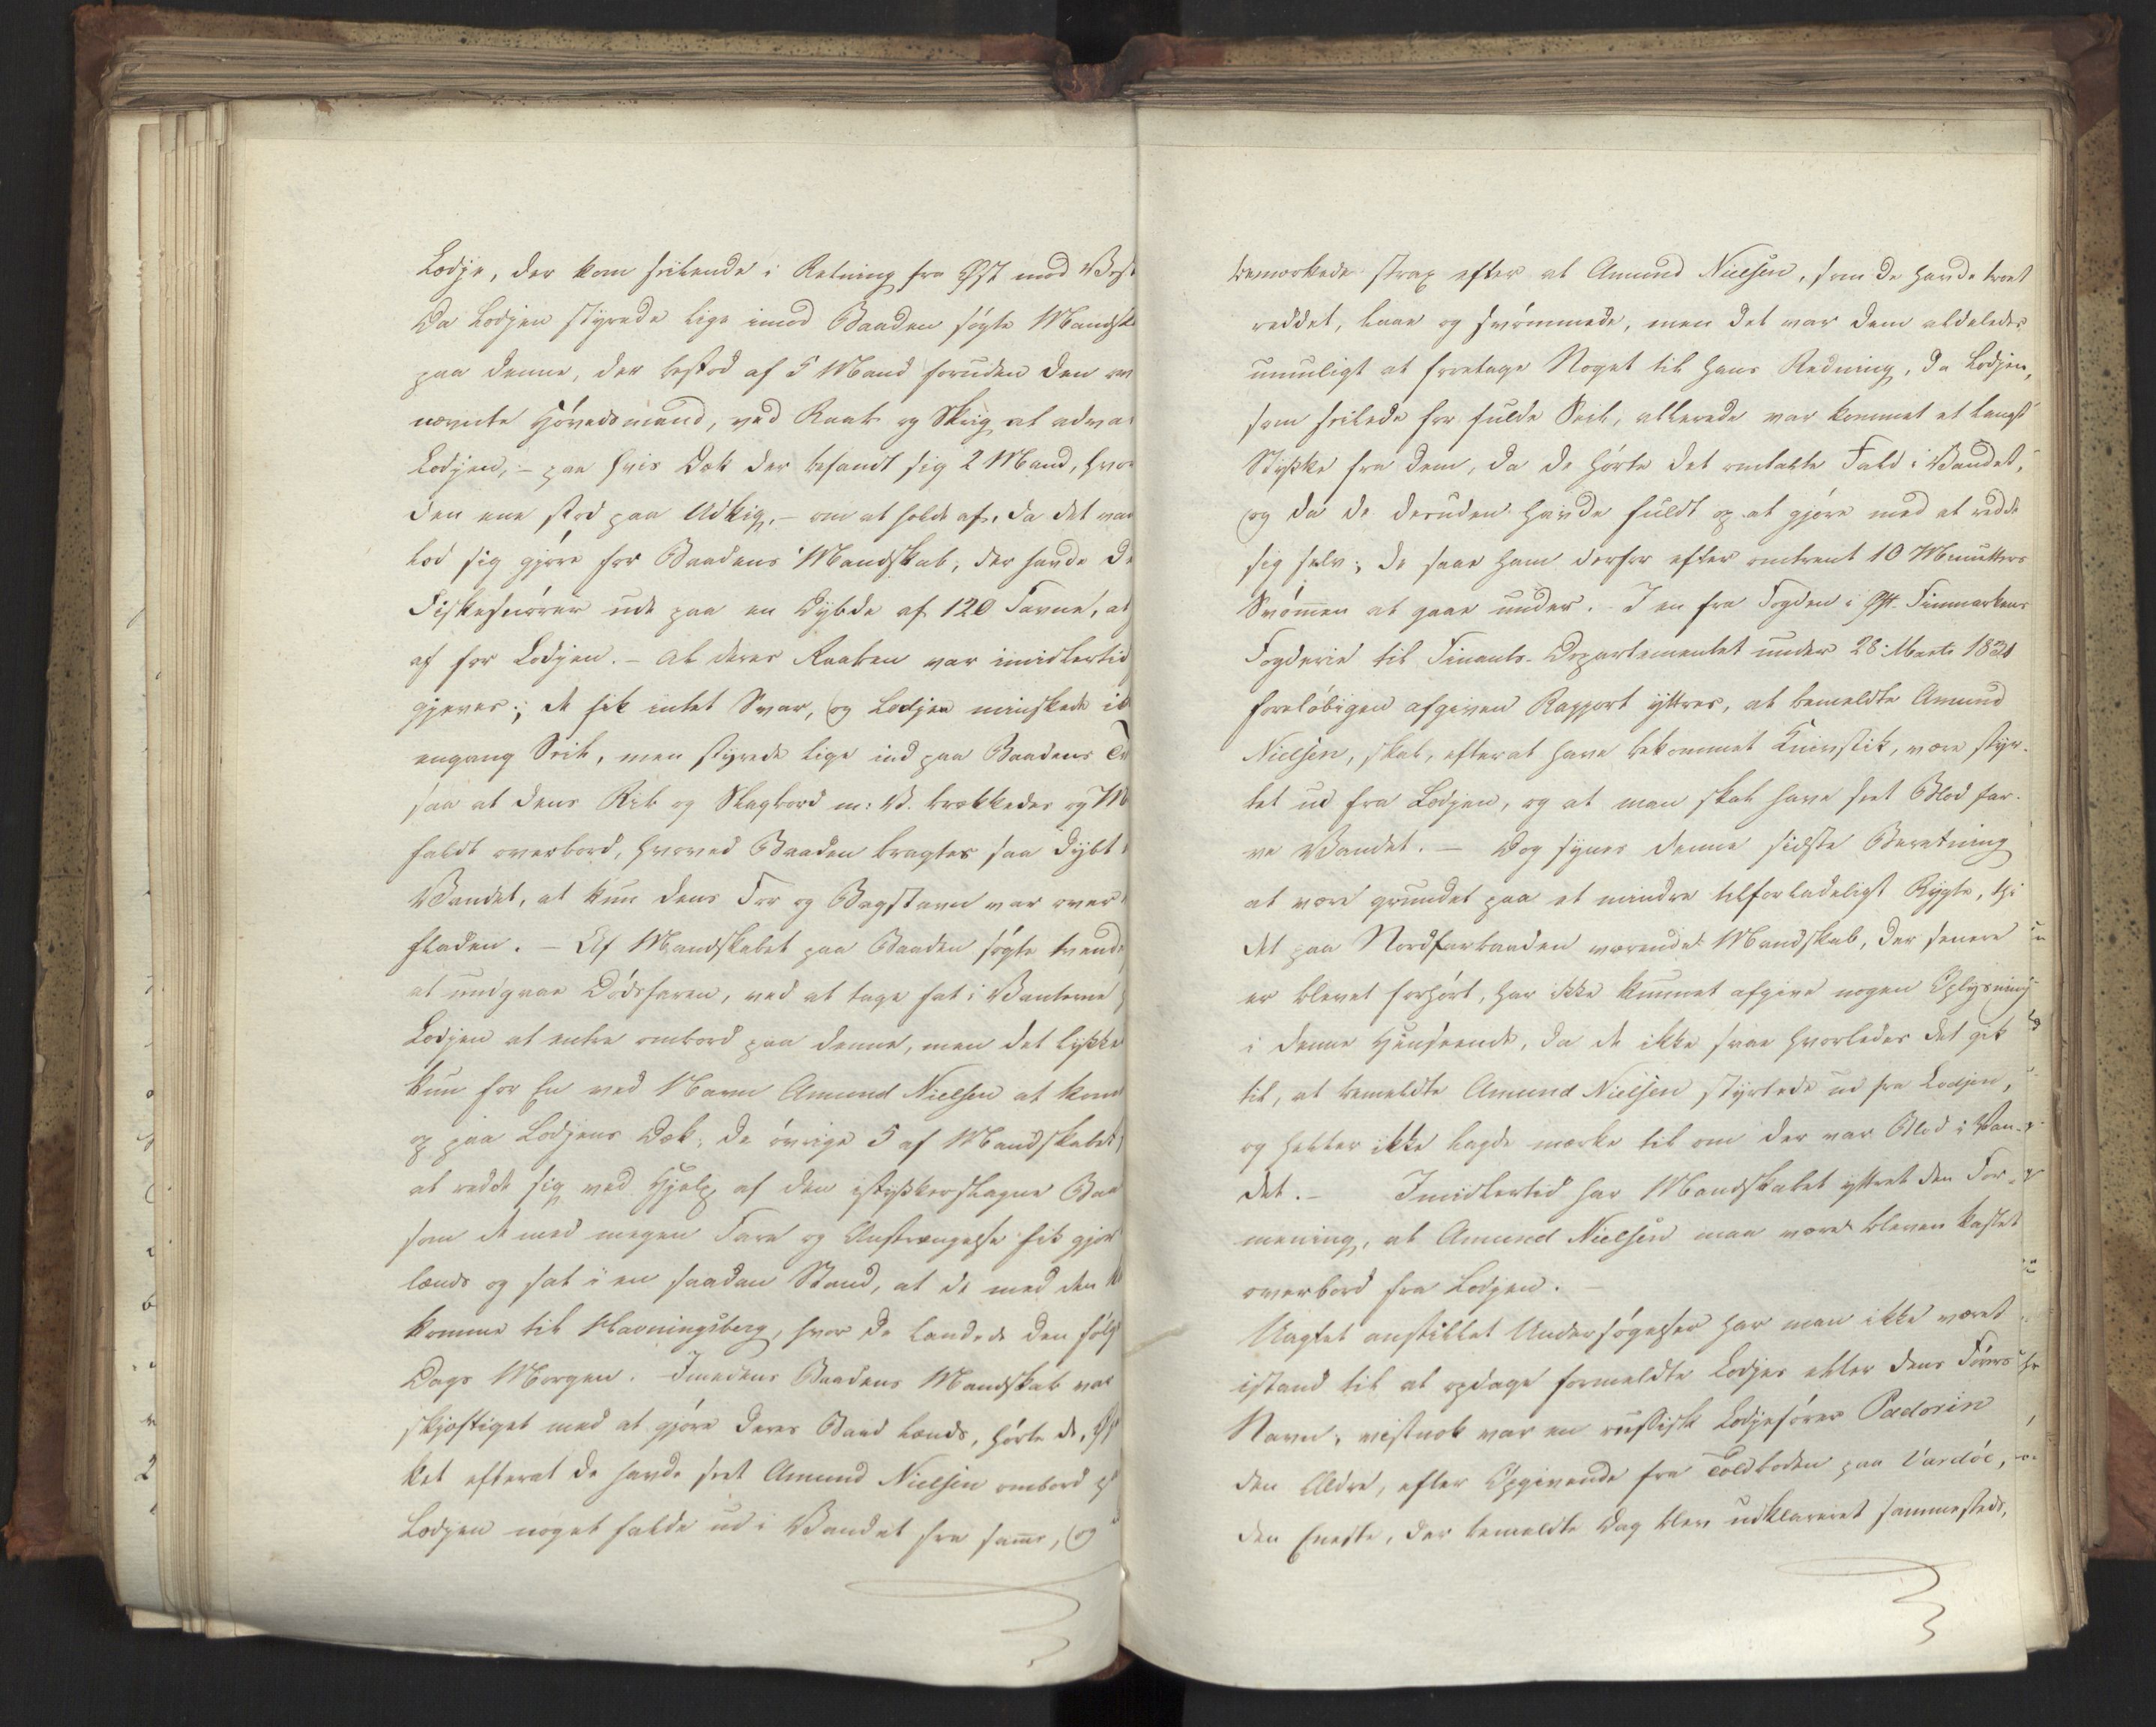 Lodje, der kom seilende i Retning fra Øst mod Vest
Da Lodjen styrede lige imod Baaden søgte Mandsk
paa denne, der bestod af 5 Mand foruden den
nævnte Høvedsmand, ved Raab og Skrig at adva
Lodjen, – paa hvis Dæk der befandt sig 2 Mand, hvor
den ene stod paa Udkig, – om at holde af, da det
lod sig gjøre for Baadens Mandskab, der havde
Fiskesnører ude paa en Dybde af 120 Favne, at
af for Lodjen. – Al deres Raaben var imidlertid
gjeves; de fik intet Svar, og Lodjen minskede
engang Seil, men styrede lige ind paa Baadens
saa at dens Rib og Skagbord m: V. brækkedes og
faldt overbord, hvorved Baaden bragtes saa dybt
Vandet, at kun dens For og Bagstavn var over
fladen. – Af Mandskabet paa Baaden søgte tvende
at undgaae Dødsfaren, ved at tage fat i Vanterne
Lodjen at entre ombord paa denne, men det lykke
kun for En ved Navn Amund Nielsen at kom
op paa Lodjens Dæk; de øvrige 5 af Mandskabet
at redde sig ved Hjelp af den istykkerslagne Baa
som de med megen Fare og Anstrængelse fik gjor
lænds og sat i en saadan Stand, at de med den
komme til Havningsberg, hvor de landede den følg
Dags Morgen. Imedens Baadens Mandskab var
skjæftiget med at gjøre deres Baad lænds, hørte de,
ket efterat de havde seet Amund Nielsen ombord
Lodjen noget falde ud i Vandet fra samme, og
bemærkede strax efter at Amund Nielsen, som de havde troet
reddet, laae og svømmede, men det var dem aldeles
umuligt at foretage Noget til hans Redning, da Lodjen,
som seilede for fulde Seil, allerede var kommet et langt
Stykke fra dem, da de hørte det omtalte Fald i Vandet,
og da de desuden havde fuldt op at gjøre med at redde
sig selv; de saae ham derfor efter omtrent 10 Minutters
Svømmen at gaae under. I en fra Fogden i Øst-Finmarkens
Fogderie til Finants-Departementet under 28 Marts 1831
foreløbigen afgiven Rapport yttres, at bemeldte Amund
Nielsen, skal, efterat have bekommet Knivstik, være styr-
tet ud fra Lodjen, og at man skal have seet Blod far-
ve Vandet. – Dog synes denne sidste Beretning
at være grundet paa et mindre tilforladeligt Rygte, thi
det paa Nordfarbaaden værende Mandskab, der senere
er blevet forhørt, har ikke kunnet afgive nogen Oplysning
i denne Henseende, da de ikke saae hvorledes det gik
til, at bemeldte Amund Nielsen styrtede ud fra Lodjen,
og heller ikke lagde mærke til om der var Blod i Van-
det. – Imidlertid har Mandskabet yttret den For-
mening, at Amund Nielsen maa være bleven kastet
overbord fra Lodjen. –
Uagtet anstillet Undersøgelser har man ikke været
istand til at opdage formeldte Lodjes eller dens Førers
Navn; vistnok var en russisk Lodjefører Padorin
den Ældre, efter Opgivende fra Toldboden paa Vardøe,
den Eneste, der bemeldte Dag blev udklareret sammesteds,